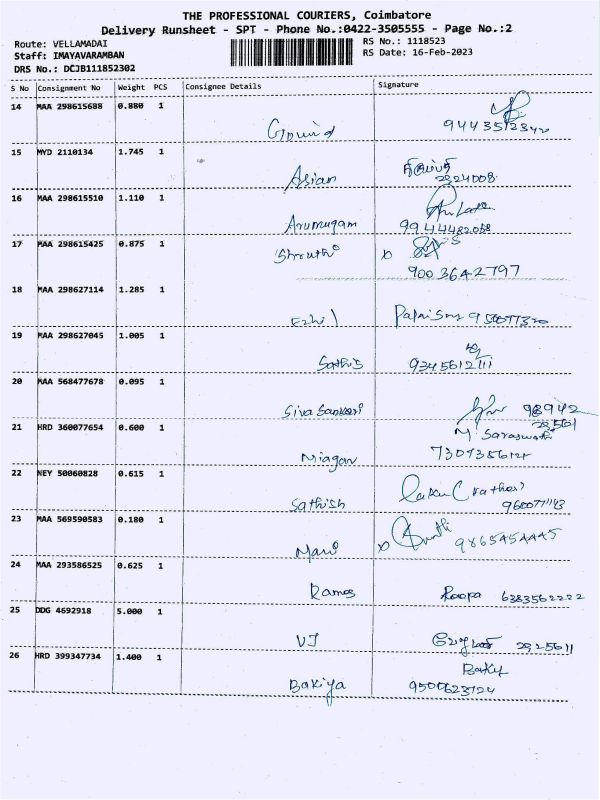 THE PROFESSIONAL COURIERS, Coimbatore
Delivery Runsheet - SPT - Phone No.:0422-3505555 - Page No.:2
Route: VELLAMADAI
RS No.: 1118523
Staff: IMAYAVARAMBAN
RS Date: 16-Feb-2023
DRS No.: DCJB111852302
S No Consignment No Weight PCS Consignee Details Signature
14 MAA 298615688 0.880 1
Govind
15 MYD 2110134 1.745 1
Asian 2324008
16 MAA 298615510 1.110 1
Arumugam
17 MAA 298615425 0.875 1 Shruthi
9003642797
18 MAA 298627114 1.285 1
Ezhil
19 MAA 298627045 1.005 1
Sathis 9345612111
20 MAA 568477678 0.095 1
Siva Sankari 98942
21 HRD 360077654 0.600 1 M. Saraswathi
Miagan
22 NEY 50060828 0.615 1
Sathish
23 MAA 569590583 0.180 1
Mari 9865454445
24 MAA 293586525 0.625 1
Ramas Roopa 6383562222
25 DDG 4692918 5.000 1
VJ
26 HRD 399347734 1.400 1
Bakiya 9500623124